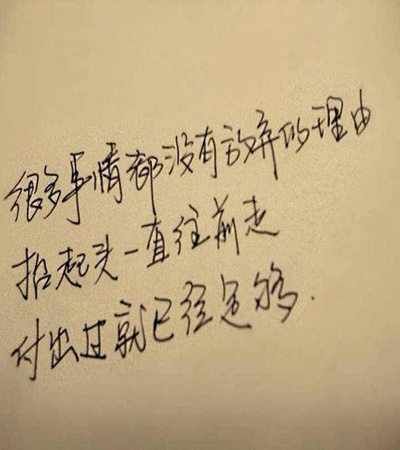 很多事情都没有放弃的理由
抬起头一直往前走
付出过就已经足够.